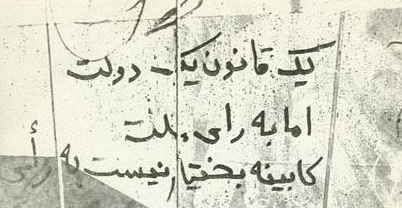 یک قانون یک دولت
اما به رأی ملت
کابینه بختیار نیست به رأی